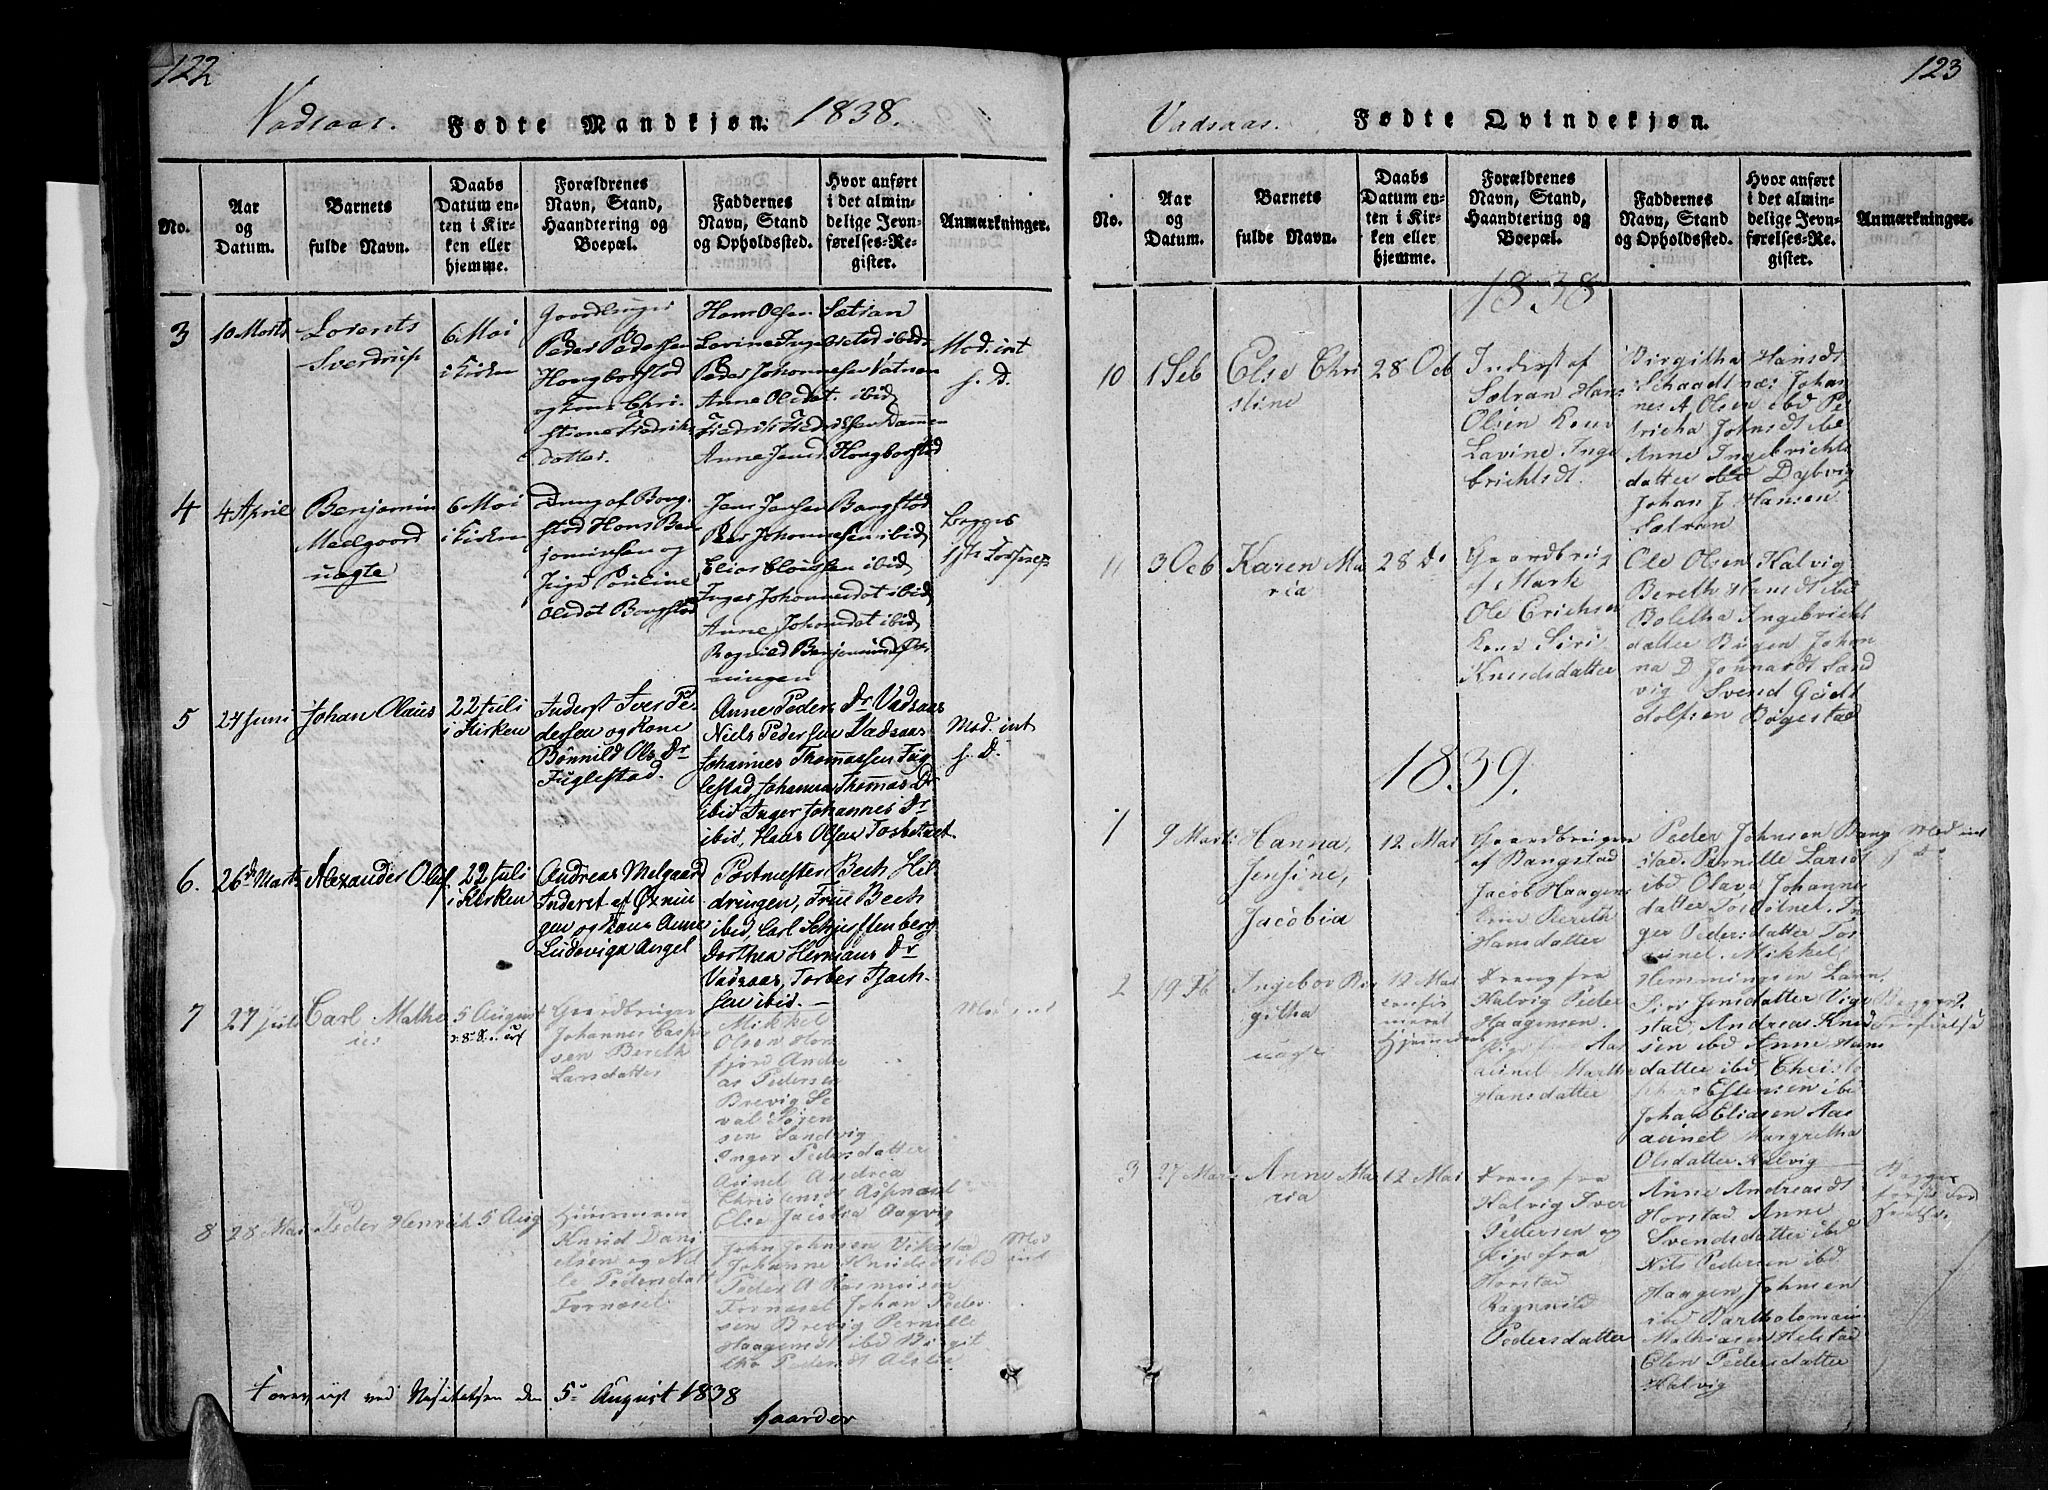 122
Vadsaas. Fødte Mandkjøn. 1838.
No.
Aar
og
Datum.
Barnets
fulde Navn.
Daabs
Datum en-
ten i Kir-
ken eller
hjemme.
Forældrenes
Navn, Stand,
Haandtering og
Boepæl.
Faddernes
Navn, Stand
og Opholdssted.
Hvor anført
i det almin-
delige Jevn-
førelses-Re-
gister.
Anmærkninger.
3
10 Marts
Lorents
Sverdrup
6 Mai
i Kirken
Peder Pedersen
Hongborstad
og Kone Chri-
stiane Fredriks
datter.
Hans Olsen Sætran
Lavine Inge
Peder Johannesen Vatnen
Anne Olsdat. ibid
Anne Jensd Hongborstad
Mod. int
s. D.
4
4 April
Benjamin
Meelgaard
uægte
6 Mai
i Kirken
Dreng af Bang-
stad Hans Ben
jaminsen og
Pige Pauline
Olsdat Bangstad
Jens Jensen Bangstad
Peer Johannesen ibid
Elias Clausen ibid
Inger Johannesdat ibid
Anne Johansdat ibid
Ragnild Benjaminsd
ningen
Begges
1ste Forseelse
5
24 Juni
Johan Olaus
22 Juli
i Kirken
Inderst Iver Pe
dersen og Kone
Bønnild Ols Dr
Fuglestad.
Anne Peders Dr Vadsaas
Niels Pedersen Vadsaas
Johannes Thomassen Fug
lestad Johanna Thomas Dr
ibid Inger Johannes Dr
ibid, Hans Olsen
Mod. int
s. D.
6.
26de Marts
Alexander Oluf
22 Juli
i Kirken
Andreas Melgaard
Inderst af Øxnin
gen og Kone Anne
Ludoviga Angel
Postmester Bech Hil-
dringen, Frue Bech
ibid, Carl
Dorthea Hermans Dr
Vadsaas, Torber
sen ibid. —
7
27 Juli
Carl Mathe
us
5 August
Gaardbruger
Johannes Casper
sen Bereth
Larsdatter
Mikkel
Olsen Hom
fjord Andre
as Pedersen
Brevig Se
val
sen Sandvig
Inger Pedersdatter
Aunet Andrea
Christensdt
Else Jacobea Aagvig
Mod int
8
28 Mai
Peder Henrich
5 Aug
Huusmann
Knud Dani
elsen og Nil
le Pedersdatt
Fornæset
John Johnsen
Johanne Knudsdt ibd
Peder A Rasmusen
Fornæset Johan Peder
sen Brevig Pernille
Haagensdt ibd Birgit
the Pedersdt
Mod
int
ved Visitatsen den 5te August 1838
Haarder
123
Vadsaas. Fødte Qvindekjøn.
No.
Aar
og
Datum.
Barnets
fulde Navn.
Daabs
Datum en-
ten i Kir-
ken eller
hjemme.
Forældrenes
Navn, Stand,
Haandtering og
Boepæl.
Faddernes
Navn, Stand
og Opholdssted.
Hvor anført
i det almin-
delige Jevn-
førelses-Re-
gister.
Anmærkninger.
1838
10
1 Seb
Else Chri
stine
28 Ocb
Inderst af
Sætran Hans
Olsen Kone
Lavine Inge
brichtsdt.
Birgitha Hansdt
Schaadtnæs Johan
nes A. Olsen ibd Pe
tricha Johnsdt ibd
Anne Ingebrichts
datter ibd Dybvig
Johan J. Hansen
Sætran
11
3 Ocb
Karen Ma
ria
28 Do
Gaardbrug
af Mark
Ole Erichsen
Kone Siri
Knudsdatter
Ole Olsen Kalvig
Bereth Hansdt ibd
Boletha Ingebricht
datter Bugen Johan
na D Jonnardt Sand
vig Svend Gudt
dolfsen Bøgestad
1839.
1
9 Marts
Hanna,
Jensine,
Jacobia
12 Mai
Gaardbrugen
af Bangstad
Jacob Haagens
Kone Bereth
Hansdatter
Peder Johnsen Bang
stad. Pernille Larsdt
ibd Olava Johannes
datter In
ger Pedersdatter
aunet. Mikkel
Mod int
s. D.
2
19 Fb
Ingebor Bir
githa
uægte
12 Mai
Dreng fra
Kalvig Peder
Haagensen.
Pige fra Aas
aunet Martha
Hansdatter
Hemmingsen
Siri Jensdatter Vige
stad Andreas Knud
sen ibd Anne Hans
datter ibd, Christo
Estensen ibd
Johan Eliasen Aas
aunet Margretha
Olsdatter Kalvig
Begges
3
27 Marts
Anne Ma
ria
12 Mai
Dreng fra
Kalvig Iver
Pedersen og
Pige fra
Horstad
Ragnnild
Pedersdatter
Anne Andreasdt
Horstad Anne
Svendsdatter ibd
Nils Pedersen ibd
Haagen Johnsen
ibd Bartholomæus
Mathiasen Helstad
Elen Pedersdatter
Kalvig
Begges
første For
seelse.